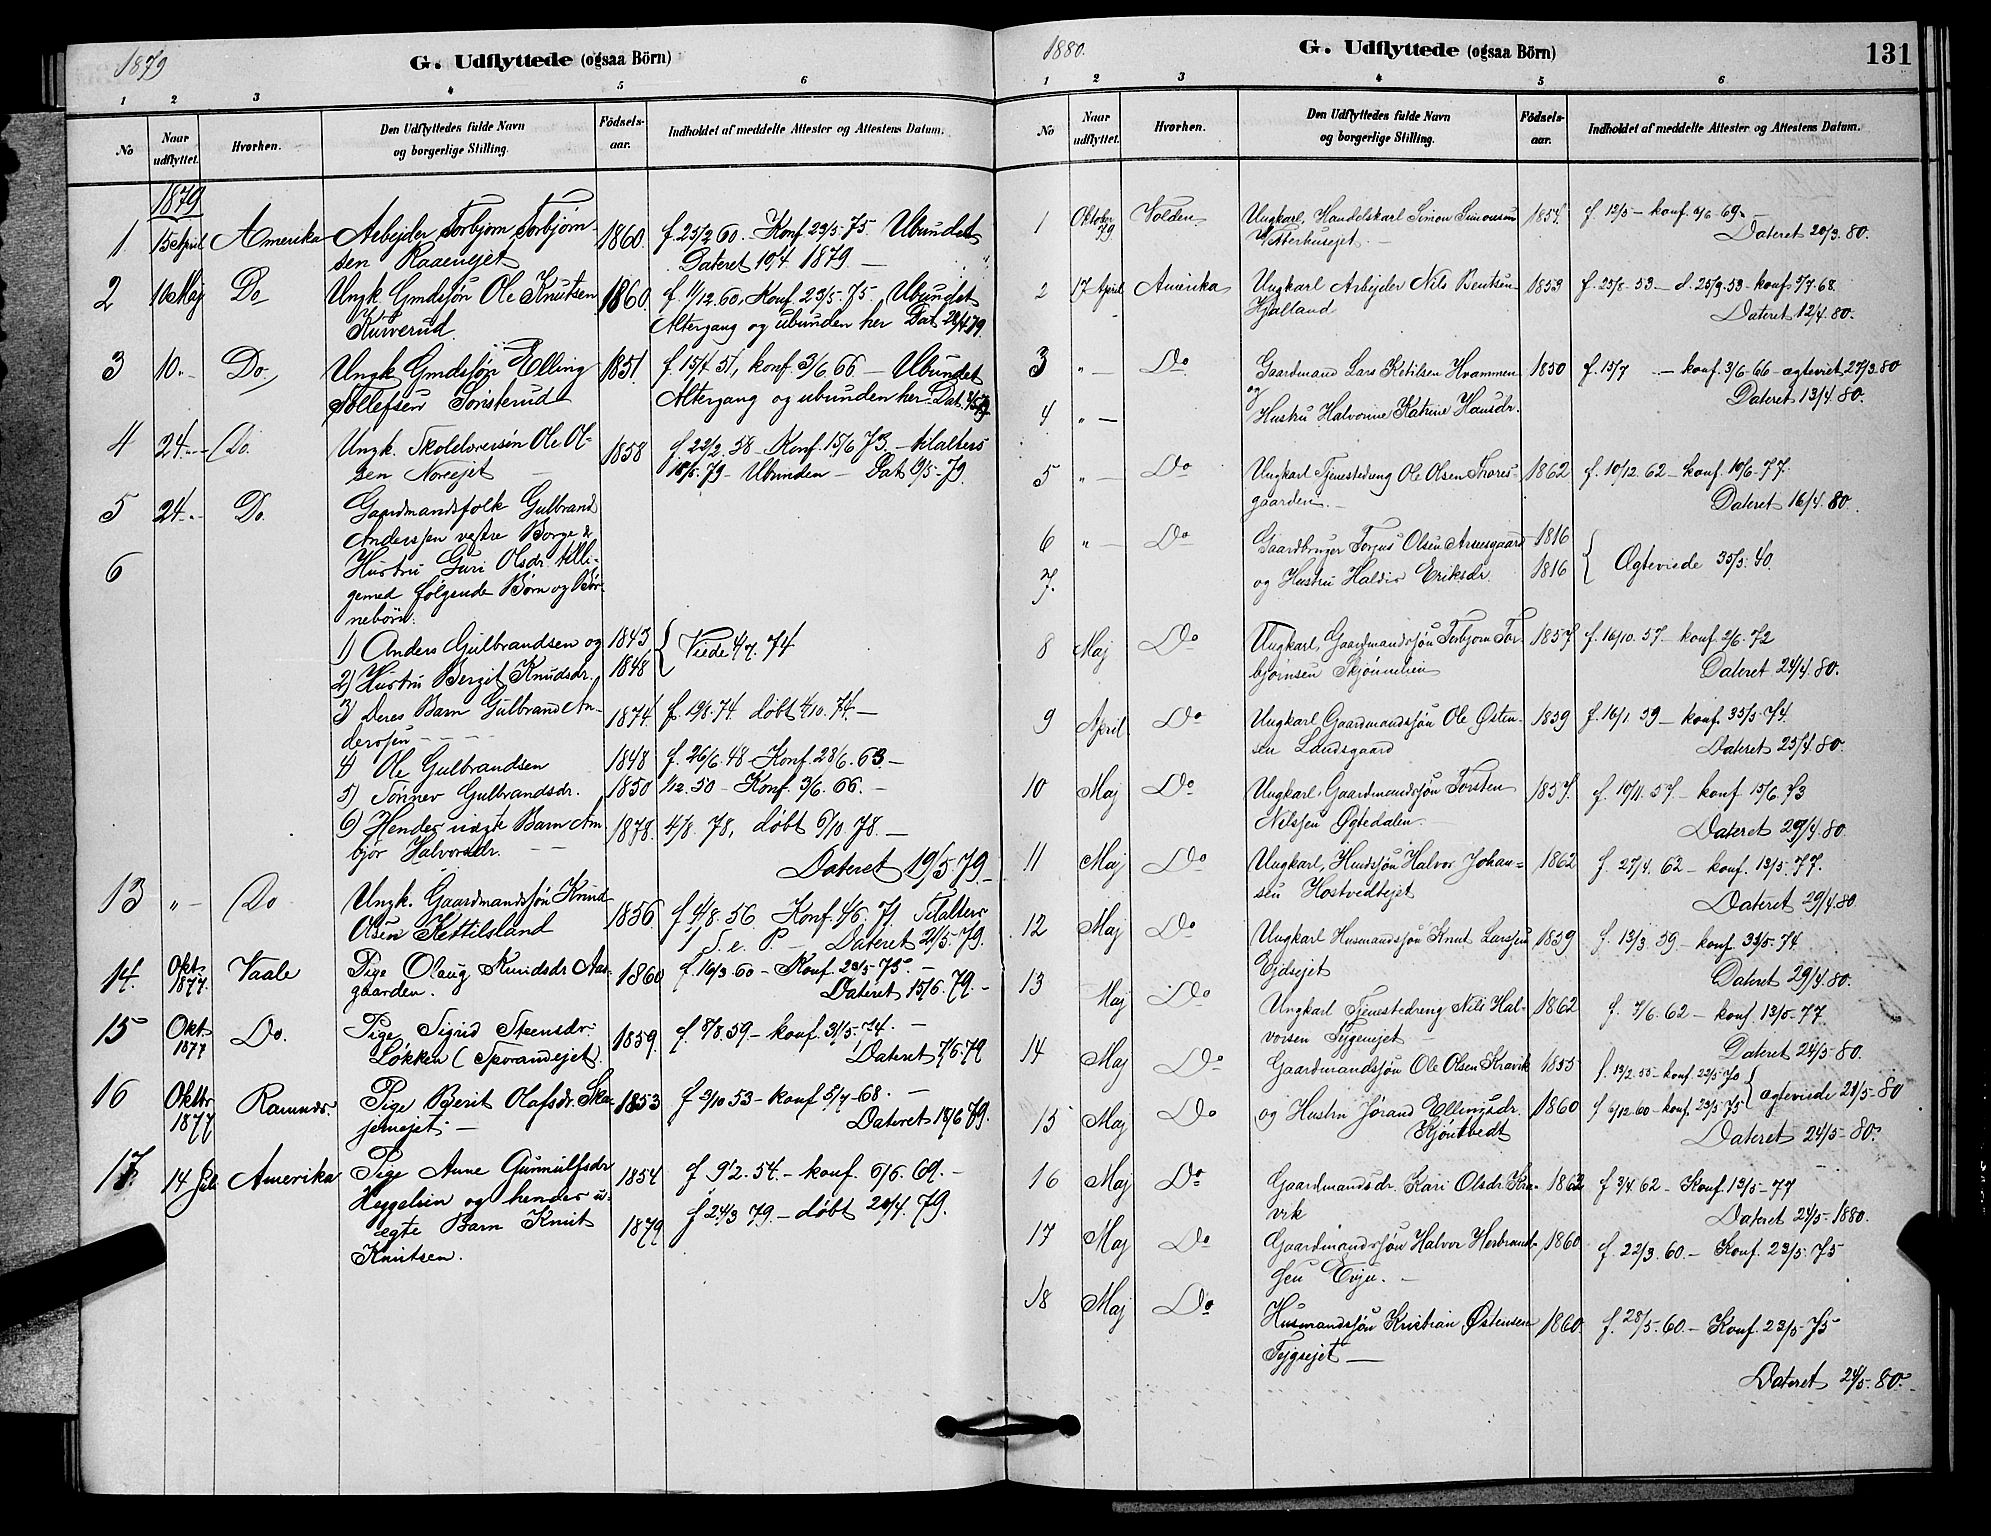 1879
G. Udflyttede (ogsaa Börn)
1 2 3 4 5 6
No
Naar udflyttet.
Hvorhen.
Den Udflyttedes fulde Navn
og borgerlige Stilling.
Födsels-
aar.
Indholdet af meddelte Attester og Attestens Datum.
1879
1 15 April Amerika Arbejder Torbjørn Torbjørn- 1860 f. 25/2 60. Konf. 23/5-75. Ubundet
sen Raaenejet Dateret 19/4 1879. —
2 16 Maj Do Ungk. Gmdsjøn Ole Knutsen 1860. f. 11/12.60. Konf. 23/5-75. Ubundet
Ruverud. Altergang og ubunden her Dat. 29/4 79.
3 10.— Do Ungk. Gmdsjøn Elling 1851. f. 15/7 51, konf. 3/6 66 — Ubundet
Tollefsen Sønsterud Altergang og ubunden her. Dat.
4 24.— Do. Ungk. Skolelærersön Ole Ol- 1858 f. 22/2.58 — Konf. 15/6 73 — tilalters
sen Noreejet — 18/5.79 — Ubunden — Dat 9/5-79.
5 24.— Do. Gaardmandsfolk Gulbrand
Anderssen vestre Borge &
6 Hustru Guri Olsdr. tilli-
gemed følgende Børn og Bör-
nebörn:
1) Anders Gulbrandsen og 1843
2) Hustru Bergit Knudsdr. 1848 { Viede 4/7. 74
3) Deres Barn Gulbrand An- 1874. f. 19/8.74 döbt 4/10.74. —
derssen — — —
4) Ole Gulbrandsen 1848 f. 26/6.48 — Konf. 28/6.63. —
5) Tönnev Gulbrandsdr. 1850 1/12.50 — Konf. 3/6.66. —
6) Hendes uægte Barn Am- 1878. 4/8.78, döbt 6/10.78. —
bjør Halvorsdr. — — Dateret 19/5.79. —
13 " — Do Ungk. Gaardmandssjøn Knud 1856 f. 4/8.56 Konf. 4/6.71. Tilalters
Olsen Kettilsland Dateret 21/5-79.
14. Okt. 1877. Vaale Pige Olaug Knudsdr. Aas- 1860 f. 16/3.60 — Konf. 23/5-75. —
gaarden. Dateret 15/6.79. —
15 Okt. 1877 Do. Pige Sigrid Steensdr. 1859. f. 8/8.59 — konf. 31/5-74. —
Løkken (Sporanejet) Dateret 7/6-79
16 Oktbr 1877 Ramnæs. Pige Berit Olafsdr. Ska- 1853 f 3/10 53 — konf 5/7-68. —
jemejet — Dateret 18/6 79.
17. 14 Juli Amerika Pige Anne Gunnulfsdr 1854 f 9/2.54. — konf. 6/6.69. —
Heggelien og hendes u-
ægte Barn Knut 1879 f 24/3 79. — döbt 20/4.79.
Knutsen.
1880.
G. Udflyttede (ogsaa Börn)
131
1 2 3 4 5 6
No
Naar udflyttet.
Hvorhen.
Den Udflyttedes fulde Navn
og borgerlige Stilling.
Födsels-
aar.
Indholdet af meddelte Attester og Attestens Datum.
1 Oktober 79. Volden. Ungkarl, Handelskarl Simon Simonsen 1854. f. 12/5 — konf. 6/6 69. —
Vetterhusejet. — Dateret 20/3.80.
2 17 April Amerika Ungkarl Arbejder Nils Bentsen 1853 f. 23/8.53 — d. 25/9.53 — konf. 5/7.68.
Hjalland Dateret 12/4.80.
3 " — Do Gaardmand Lars Ketilsen Hvammen 1850 f. 15/7 — konf. 3/6-66 — ægteviet 27/3.80
og Dateret 13/4.80.
4 " — Hustru Halvorine Katrine Hansdr.
5 " — Do Ungkarl Tjenestedreng Ole Olsen Thores- 1862 f. 10/12 62 — konf. 10/6-77.
gaarden. — Dateret 16/4.80.
6 " — Do Gaardbruger Torjus Olsen Arnesgaard 1816
7. og Hustru Haldis Eriksdr. 1816 { Ægteviede 35/5.40.
8 Maj Do Ungkarl, Gaardmandssjøn Torbjorn Tor- 1857. f. 16/10.57 — konf. 2/6.72
bjørnsen Skjønnelien Dateret 24/4.80.
9 April Do Ungkarl, Gaardmandssjøn Ole Østen- 1859 f. 16/1 59 — konf. 35/5-74.
sen Landsgaard Dateret 25/4.80.
10 Maj Do Ungkarl, Gaardmandssjøn Torsten 1857. f. 10/11.57. — konf. 15/6.73
Nilsjen Øgtedalen. — Dateret 29/4.80.
11 Maj Do Ungkarl, Husdsjøn Halvor Johan- 1862 f. 27/4.62 — konf. 13/5-77.
sen Hostvedtejet Dateret 29/4.80.
12 Maj Do Ungkarl Husmandssjøn Knut Larssen 1859 f. 13/3.59. — konf. 35/5-74.
Ejdsejet Dateret 29/4.80.
13 Maj Do Ungkarl Tjenestedreng Nils Hal- 1862 f. 7/6.62 — konf. 13/5-77
vorsen Tygenejet — Dateret 24/5-80.
14 Maj Do Gaardmandssjøn Ole Olsen Kravik 1855 f. 13/2.55 — konf. 22/5-70
15 Maj Do og Hustru Jørand Ellingsdr. 1860 f. 6/12.60 — konf. 23/5.75 } ægteviede 21/5-80
Kjøntvedt Dateret 24/5-80.
16 Maj Do Gaardmandsdr. Kari Olsdr. Kra- 1862 f 3/4.62 — Konf. 13/5-77
vik Dateret 24/5-1880.
17 Maj Do Gaardmandssjøn Halvor Herbrand- 1860 f. 22/3.60. — Konf. 23/5.75
sen Evju. —
18 Maj Do Husmandssjøn Kristian Østensen 1860 f. 28/5.60. — Konf. 23/5-75
Tygsejet — Dateret 24/5.80.